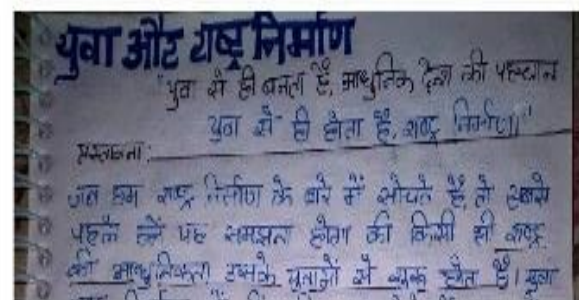 युवा और राष्ट्र निर्माण
"युवा से ही बनता है, आधुनिक देश की पहचान
युवा से ही होता है, राष्ट्र निर्माण।"
प्रस्तावना:
जब हम राष्ट्र निर्माण के बारे में सोचते है, तो सबसे
पहले हमें यह समझना होगा की किसी भी राष्ट्र
की आधुनिकता उसके युवाओं से व्यक्त होता है। युवा